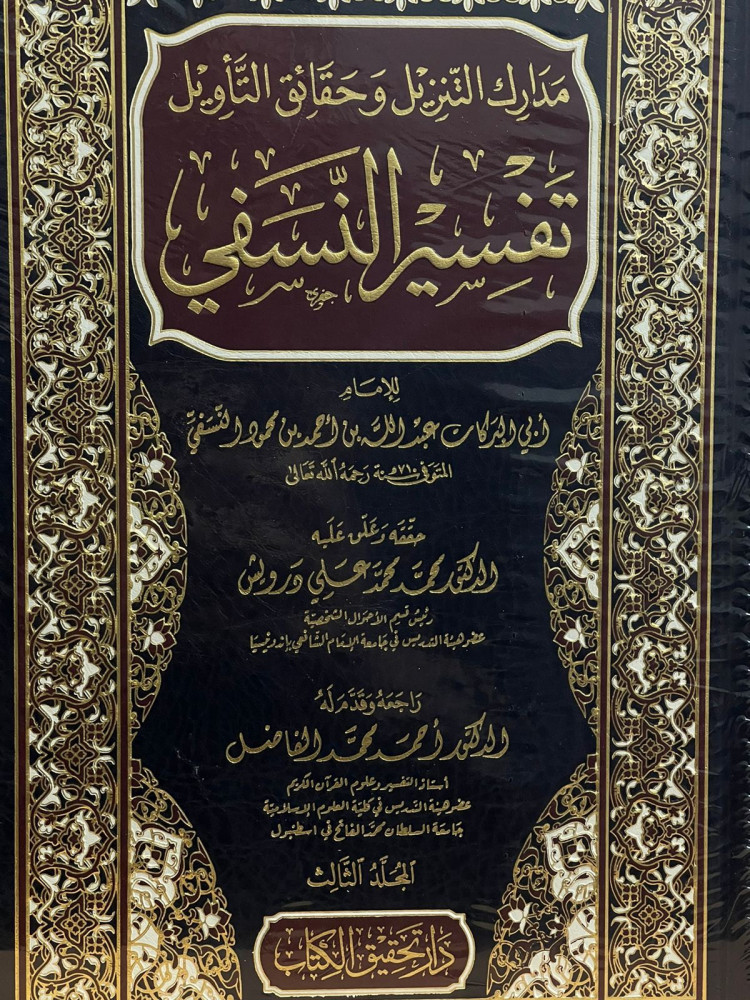 مَدَارِك التَّنزِيل وَحَقَائِق التَّأوِيل
تَفسِير النَّسَفي
لِلإمَام
أبي البركات عبد الله بن أحمد بن محمود النَّسَفيّ
المتوفى سنة ٧١٠ رَحمَهُ اللّه تَعَالى
حَقّقه وَعَلّق عَلَيه
الدكتور محمّد محمّد عَلي درويش
رئيس قسم الأحوال الشخصيّة
عضو هيئة التدريس في جامعة الإمام الشافعي بإندونيسيا
رَاجَعَهُ وَقَدَّمَ لَهُ
الدكتور أحمد محمّد الفاضل
أستاذ التفسير وعلوم القرآن الكريم
عضو هيئة التّدريس في كليّة العلوم الإسلاميّة
جامعة السلطان محمّد الفاتح في اسطنبول
المُجَلّدُ الثَّالِث
دَارُ تَحقِيقِ الكِتَاب